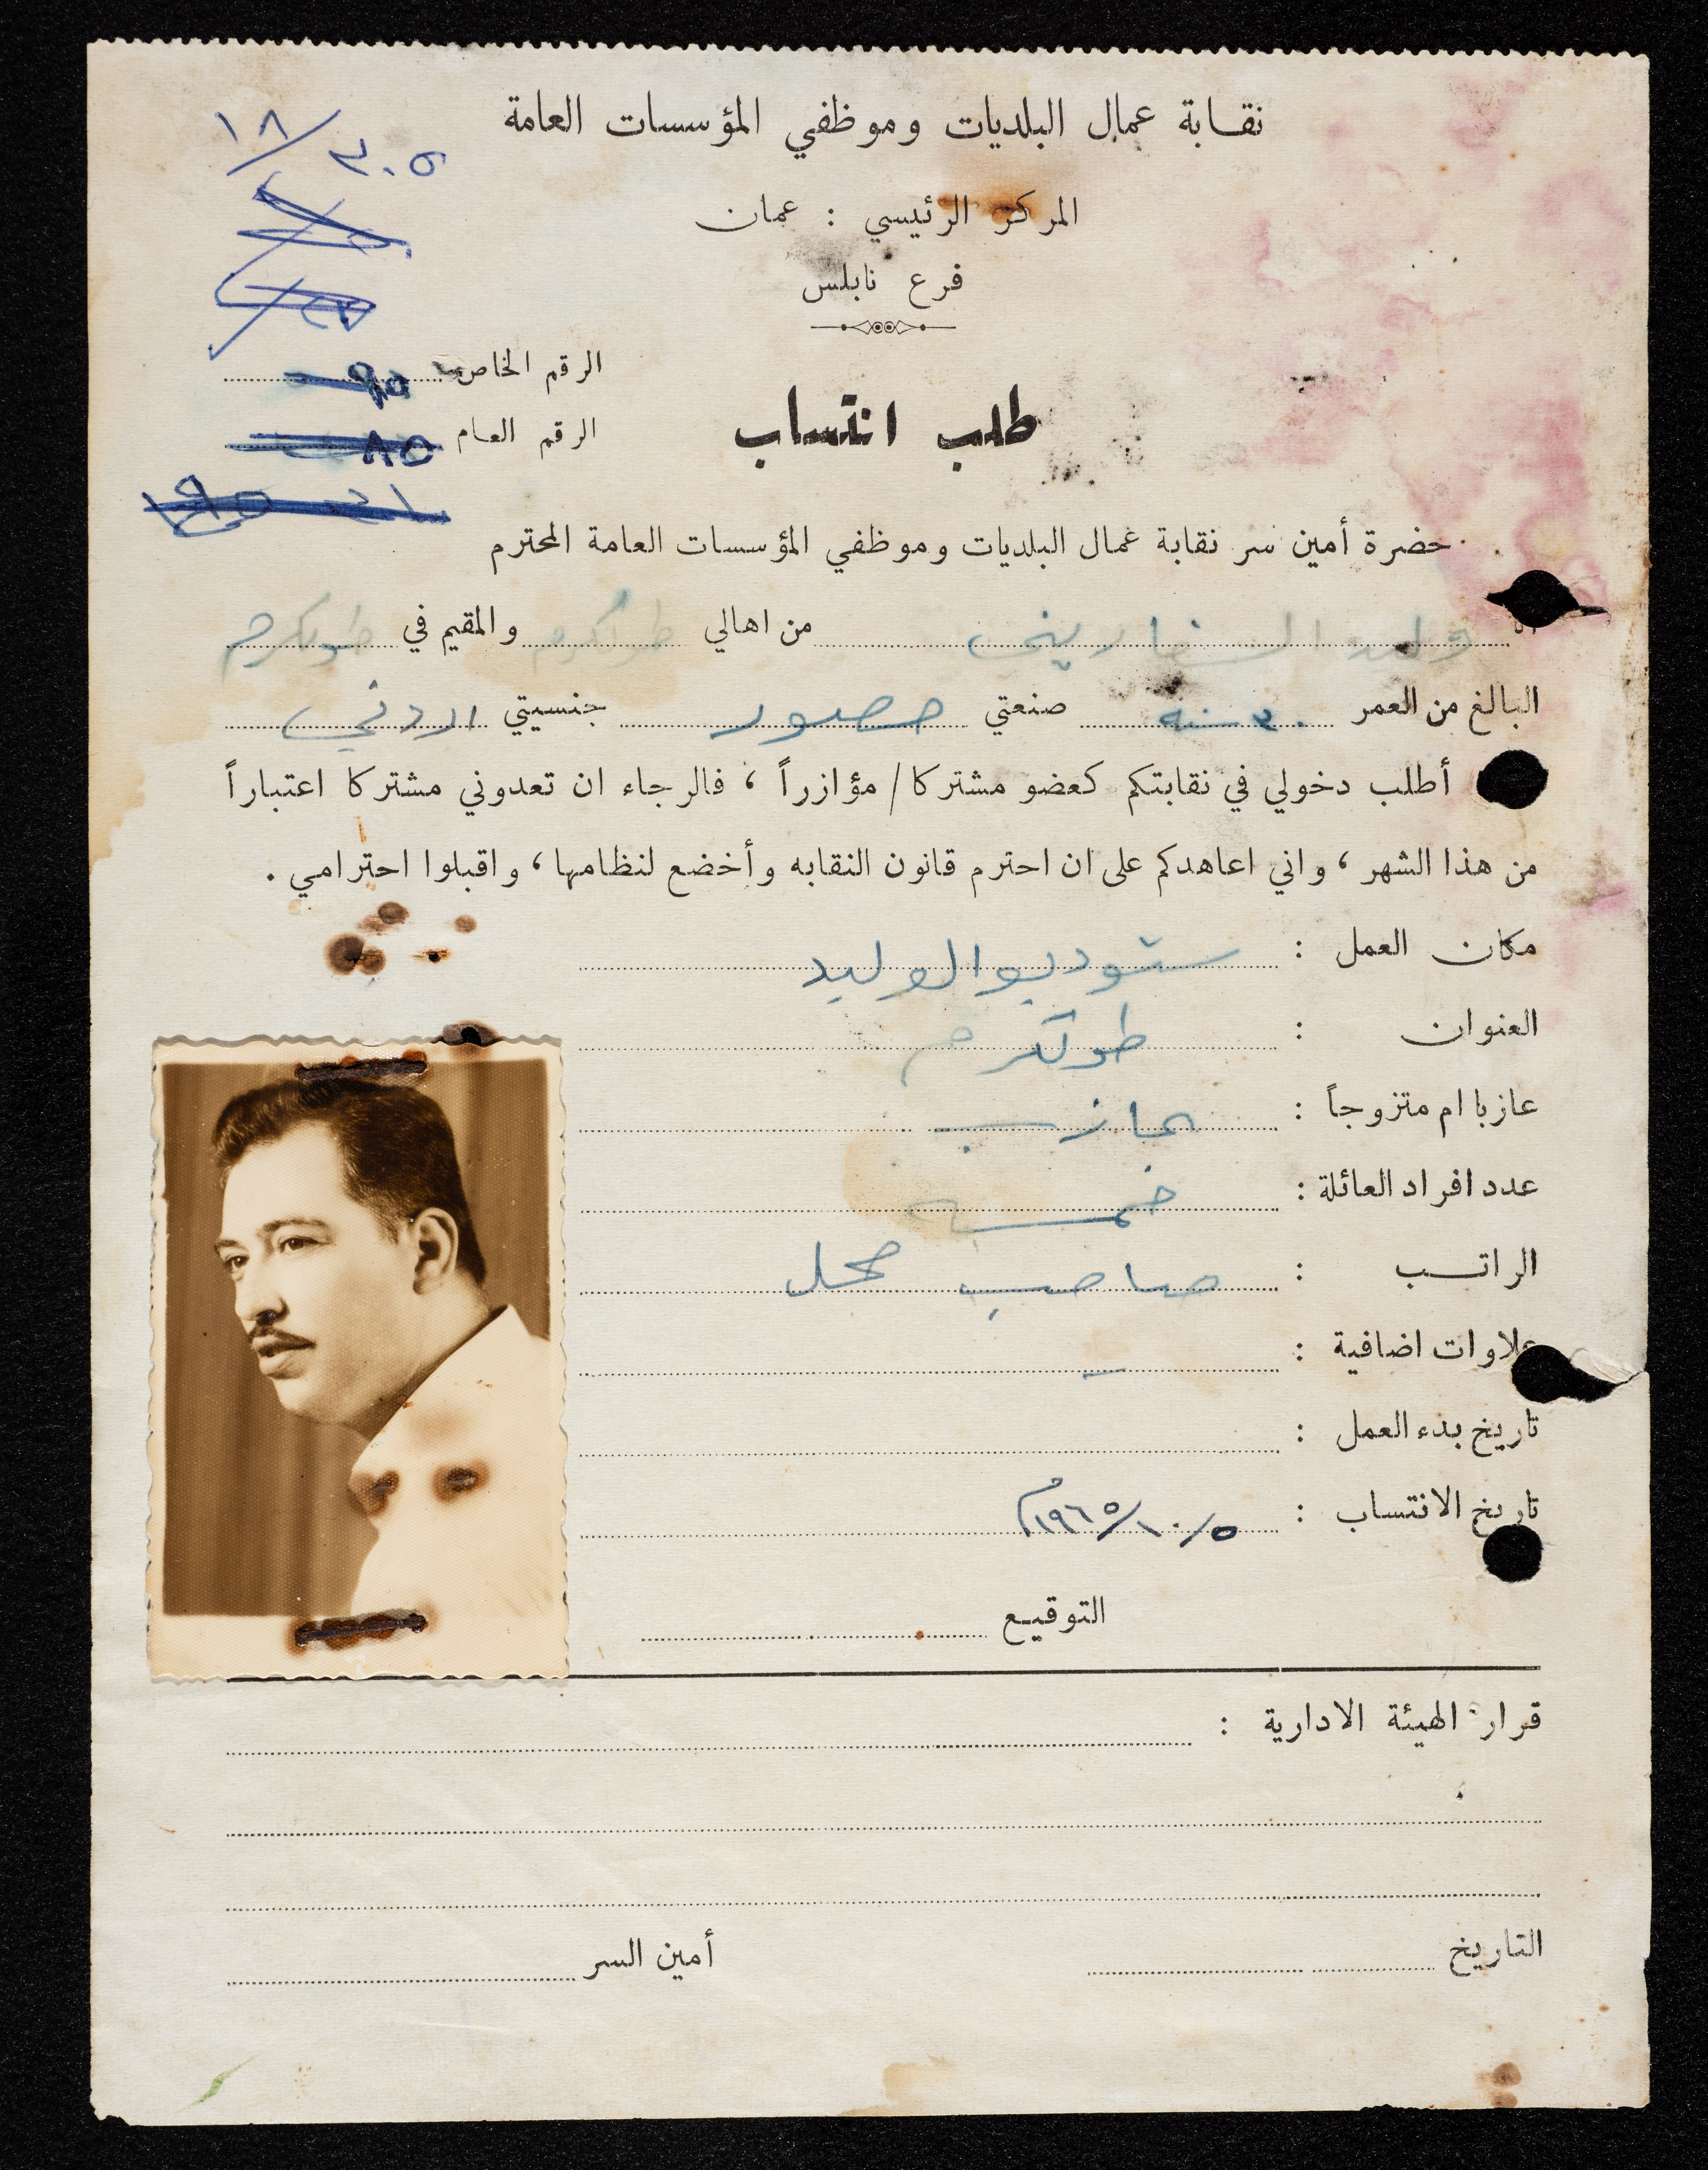 نقابة عمال البلديات وموظفي المؤسسات العامة
١٨/٣٠٥
المركز الرئيسي : عمان
فرع نابلس
الرقم الخاص ٩٥
طلب انتساب
الرقم العام ٨٥
حضرة أمين سر نقابة عمال البلديات وموظفي المؤسسات العامة المحترم
وليد السفاريني من اهالي طولكرم والمقيم في طولكرم
البالغ من العمر ٣٠ سنه صنعتي مصور جنسيتي اردني
أطلب دخولي في نقابتكم كعضو مشتركا / مؤازراً ، فالرجاء ان تعدوني مشتركا اعتباراً
من هذا الشهر ، واني اعاهدكم على ان احترم قانون النقابه وأخضع لنظامها ، واقبلوا احترامي .
مكان العمل : ستوديو الوليد
العنوان : طولكرم
عازبا ام متزوجاً : عازب
عدد افراد العائلة : خمسه
الراتب : صاحب محل
علاوات اضافية : –
تاريخ بدء العمل :
تاريخ الانتساب : ٥/١٠/١٩٦٥م
التوقيع
قرار الهيئة الادارية :
التاريخ أمين السر